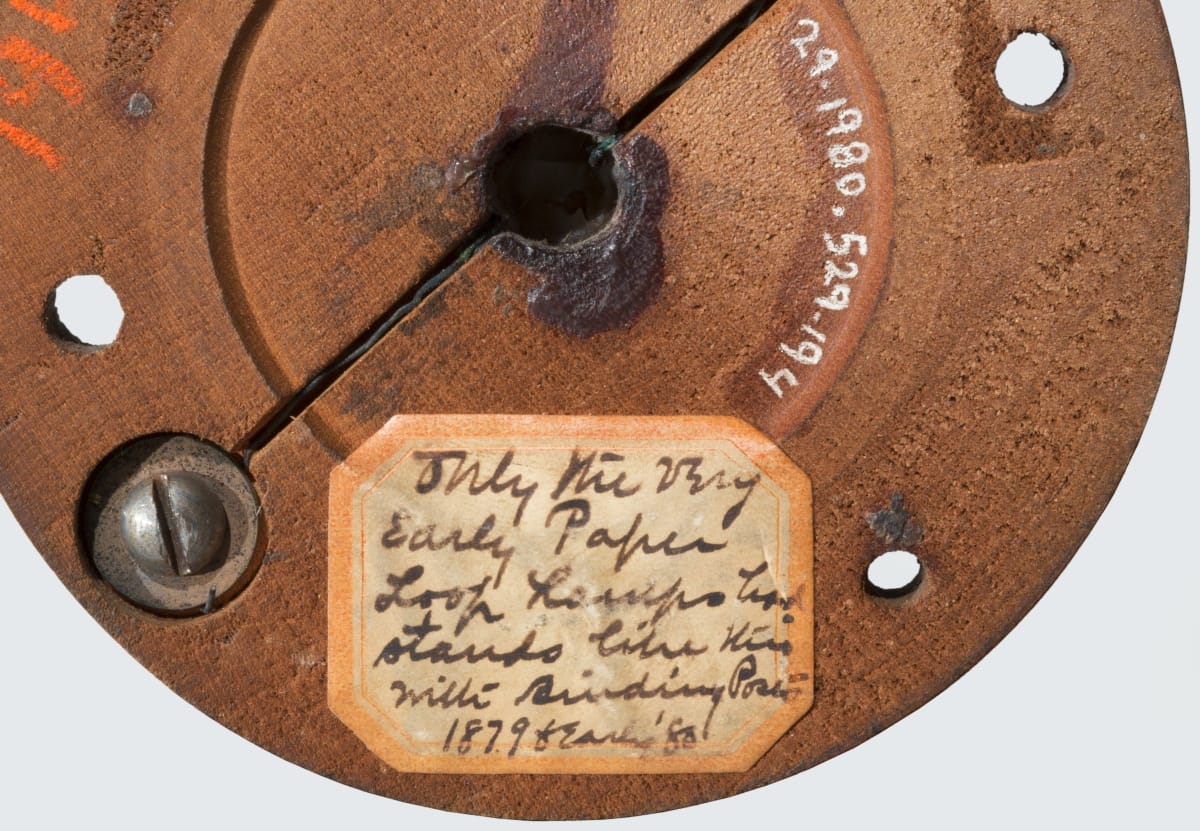 29.1980.529.194
Only the very
Early Paper
Loop Lamps had
stands like this
with Binding Posts
1879 & Early '80